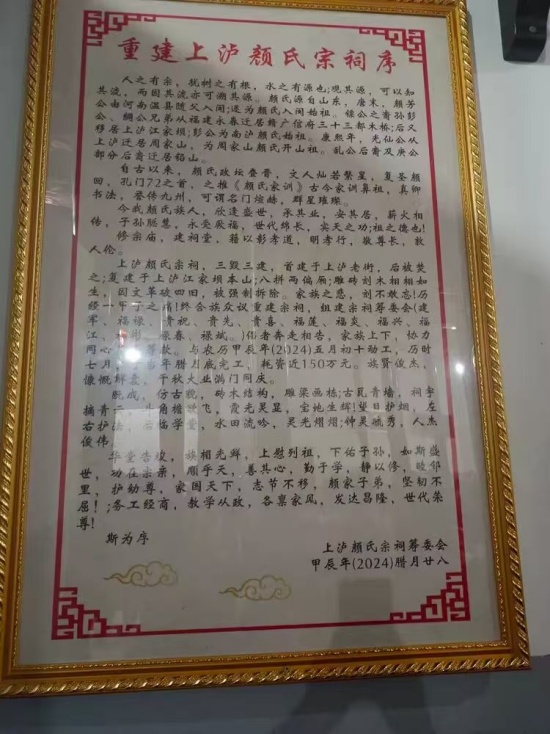 重建上泸颜氏宗祠序
人之有宗，犹树之有根，水之有源也；观其源，可以知
其流，而因其流亦可溯其源。颜氏源自山东，唐末，颜芳
公由河南温县随父入闽；逗为颜氏入闽始祖。镍公之裔孙彭
公、绸公兄弟从福建永春迁居赣广信府三十三都木桥；后又
移居上泸江家坝；彭公为南泸颜氏始祖。康熙年，光仙公从
上泸迁居周家山，为周家山颜氏开山祖。乩公后裔及庚公
部分后裔迁居稻山。
自古以来，颜氏政坛叠晋，文人灿若繁星，复圣颜
回，孔门72之首，之推《颜氏家训》古今家训鼻祖，真卿
书法，誉传九州，可谓名门煊赫，群星璀璨。
今我颜氏族人，欣逢盛世，承其业，安其居，薪火相
传，子孙聪慧，永受厥福，世代绵长，实天之功；祖之德也！
修宗庙，建祠堂，籍以彰孝道，明孝行，敬尊长，敦
人伦。
上泸颜氏宗祠，三毁三建，首建于上泸老街，后被焚
之；复建于上泸江家坝本山；八拼两偏厢；雕砖刻木相相如
生，因文革破四旧，被强制拆除。家族之悲，刻不敢忘！历
经 年之之痛！终合族众议重建宗祠，组建宗祠筹委会（建
军、福禄、青祝、青先、青喜、福莲、福炎、福兴、福
江、 刚、源春、禄斌。）伯者奔走相告，家族上下，协力
同心 筹款。与农历甲辰年（2024）五月初十动工，历时
七月 年腊月底完工，耗资近150万元。族贤俊杰，
慷慨解囊，千秋大业满门同庆。
既成，仿古貌，砖木结构，雕梁画栋；古瓦青墙，祠宇
摘青 ，斗角檐欲飞，霞光昊显，宝地生辉！笙日护烟，左
右护法， 临学堂，水田流吟，灵光熠熠；钟灵毓秀，人杰
俊伟
华堂告竣，族相光鲜，上慰列祖，下佑子孙，如斯盛
世，功在宗亲，顺乎天，善其心，勤于学，静以修，睦邻
里，护幼尊，家国天下，志节不移，颜家子弟，坚韧不
屈！；务工经商，教学从政，各禀家风，发达昌隆，世代荣
尊！
斯为序
上泸颜氏宗祠筹委会
甲辰年（2024）腊月廿八